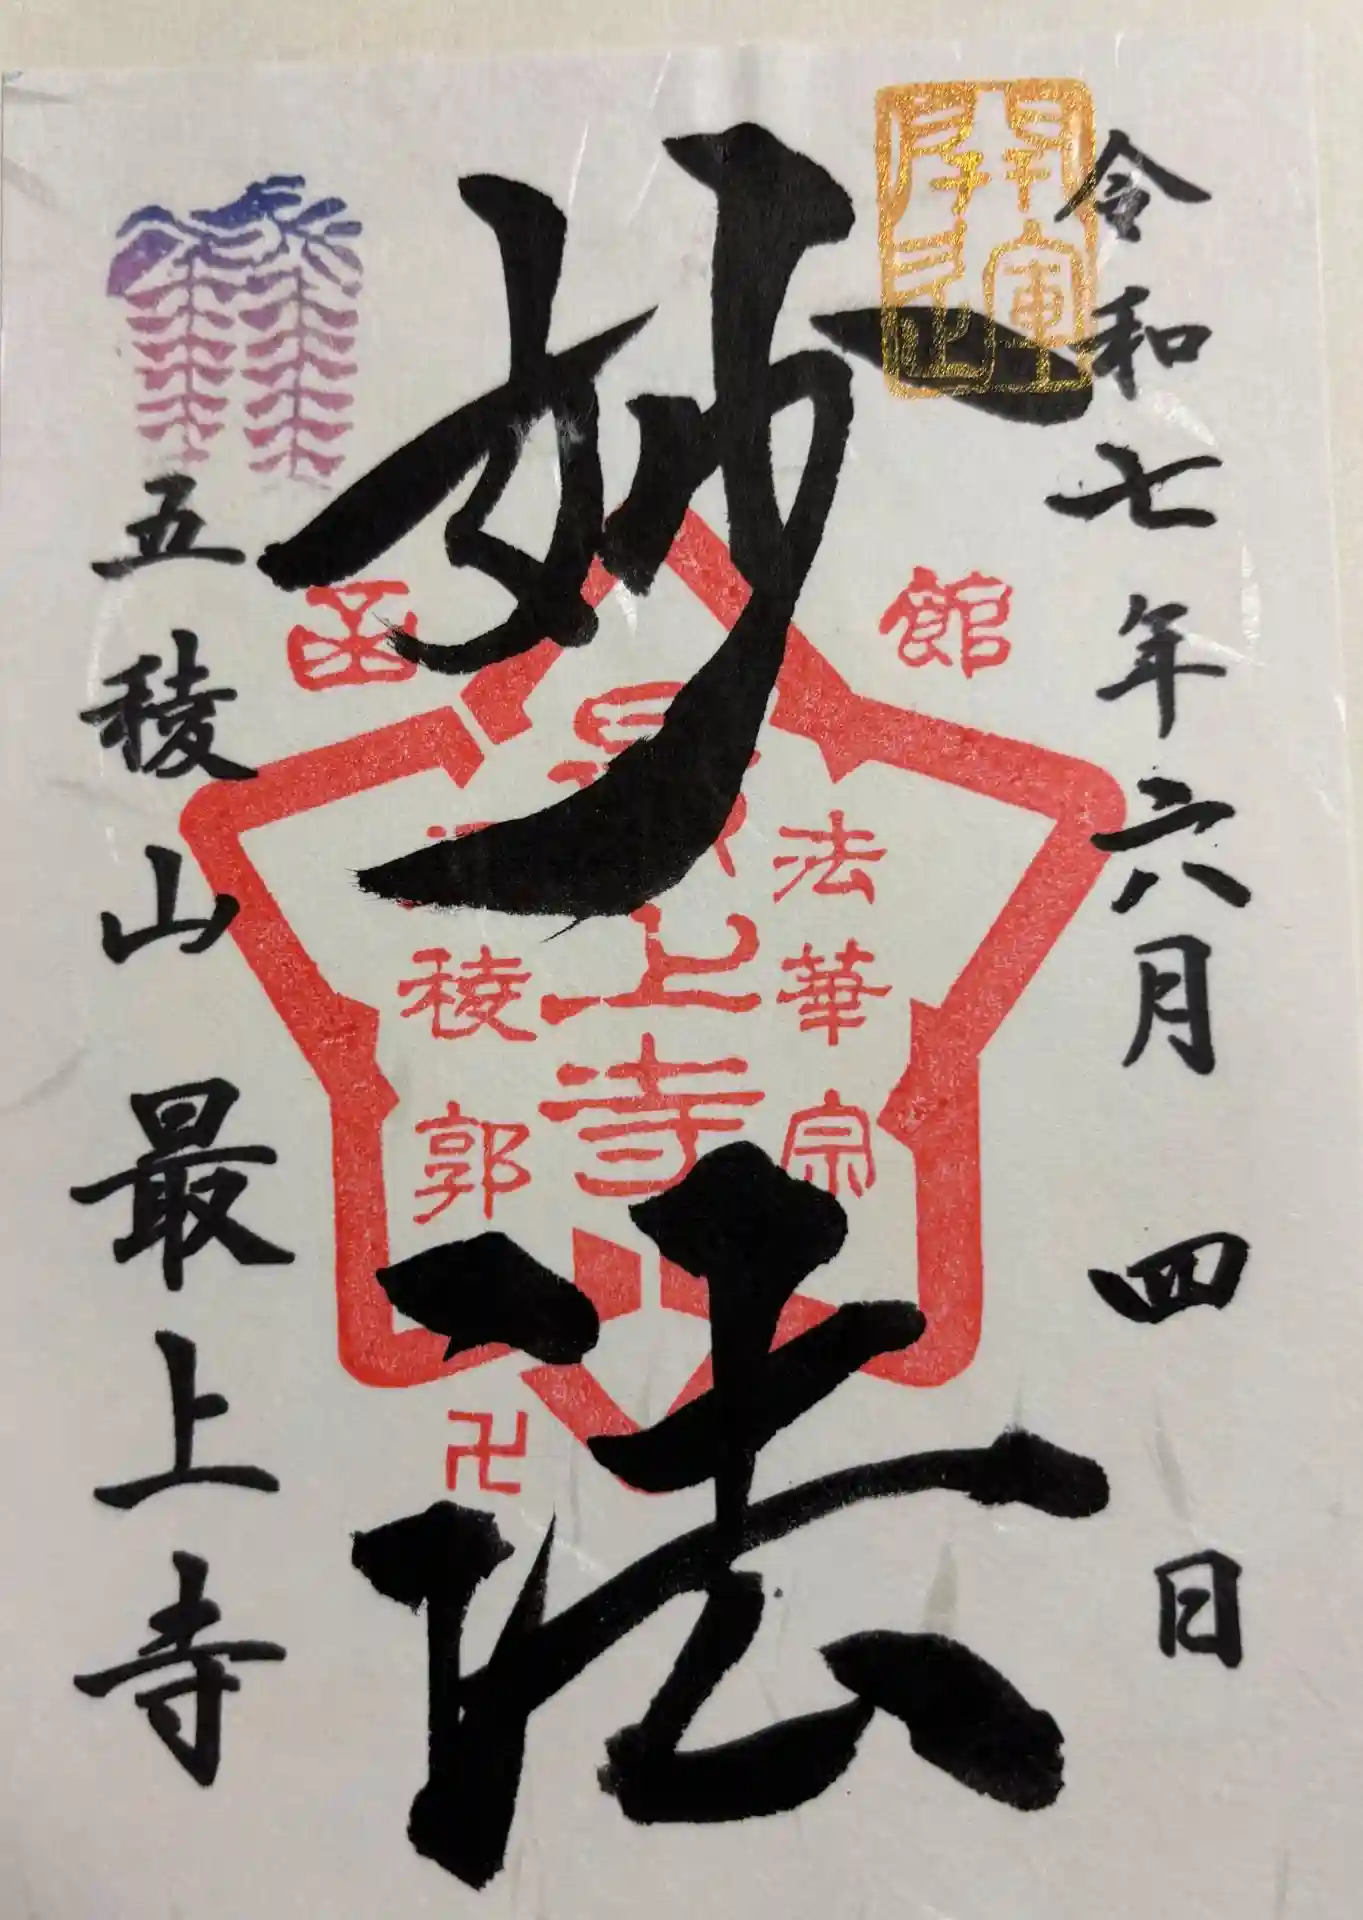 令和七年六月四日
開運
妙法
函館
法華宗
最上寺
稜郭
卍
五稜山最上寺